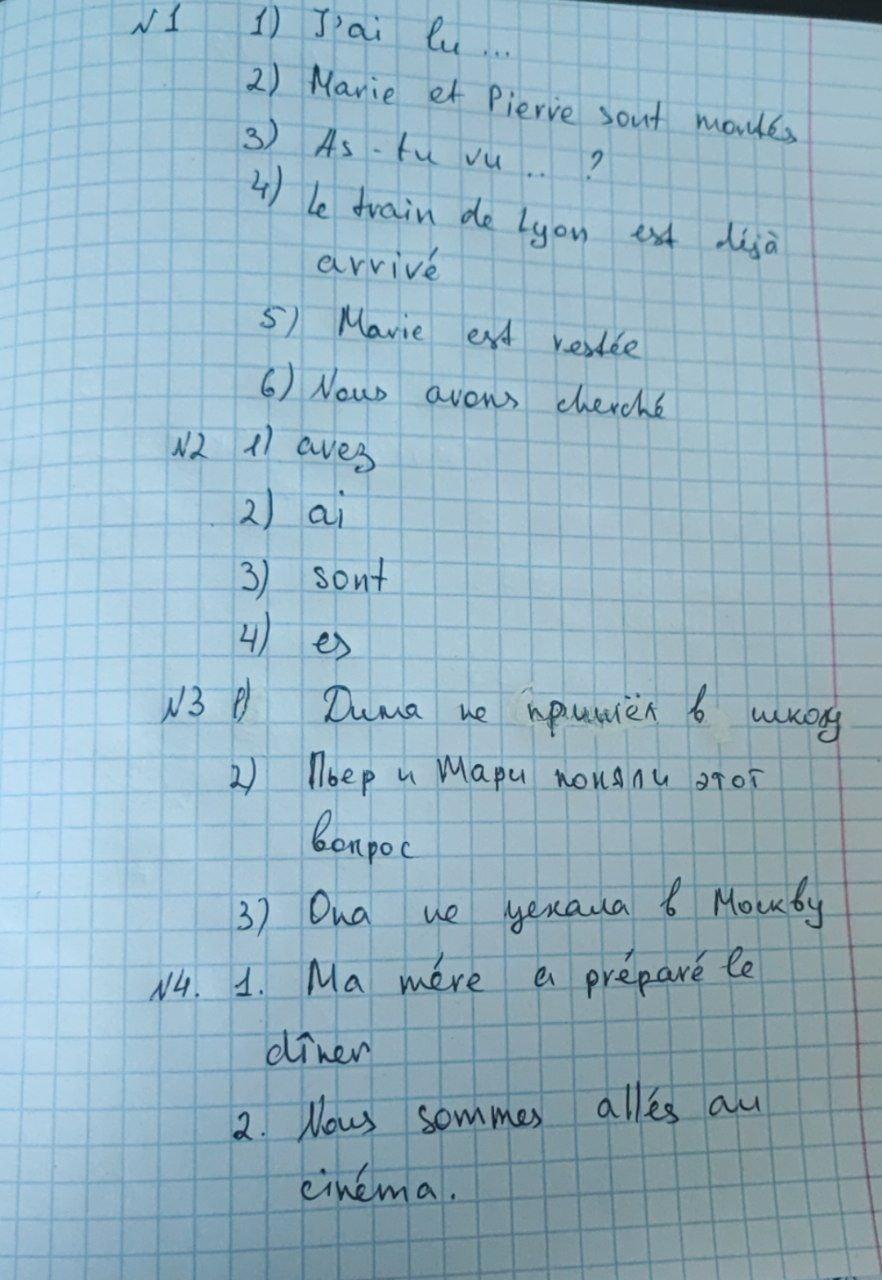 N1 1) J'ai lu ...
2) Marie et Pierre sont montés
3) As-tu vu .. ?
4) Le train de Lyon est déjà
arrivé
5) Marie est restée
6) Nous avons cherché
N2 1) avez
2) ai
3) sont
4) es
N3 1) Дима не пришёл в школу
2) Пьер и Мари поняли этот
вопрос
3) Она не уехала в Москву
N4. 1. Ma mére a préparé le
dîner
2. Nous sommes allés au
cinéma.